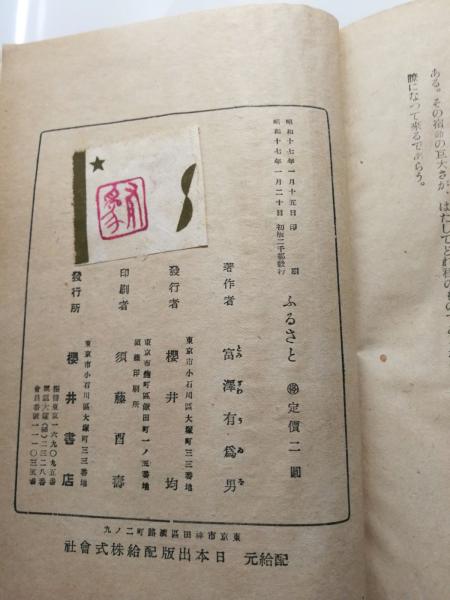 ある。その宿命の巨大さが、はたしてど
瞭になつて来るであらう。
昭和十七年一月十五日印刷
昭和十七年一月二十日初版二千部發行
ふるさと
停定價二圓
著作者 富澤有爲男
とみざわうゐを
東京市小石川區大塚町三三番地
發行者 櫻井均
東京市麴町區飯田町一ノ五番地
須藤印刷所
印刷者 須藤酉壽
東京市小石川區大塚町三三番地
發行所 櫻井書店
振替東京一六九〇九五番
電話大塚(86)二三二八番
會員番號一一一〇三五番
東京市神田區淡路町二ノ九
配給元 日本出版配給株式會社